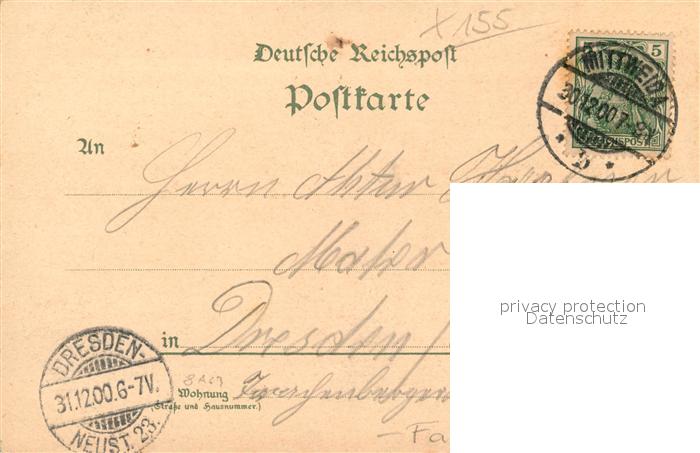 X 155
Deutsche Reichspost
Postkarte
5 5
MITTWEIDA
30.12.00.7-8V.
* b *
REICHSPOST
An
Herrn
Maler
in Dresden
Wohnung
(Straße und Hausnummer.)
DRESDEN-
31.12.00.6-7V.
NEUST. 23.
privacy protection
Datenschutz
- Fa